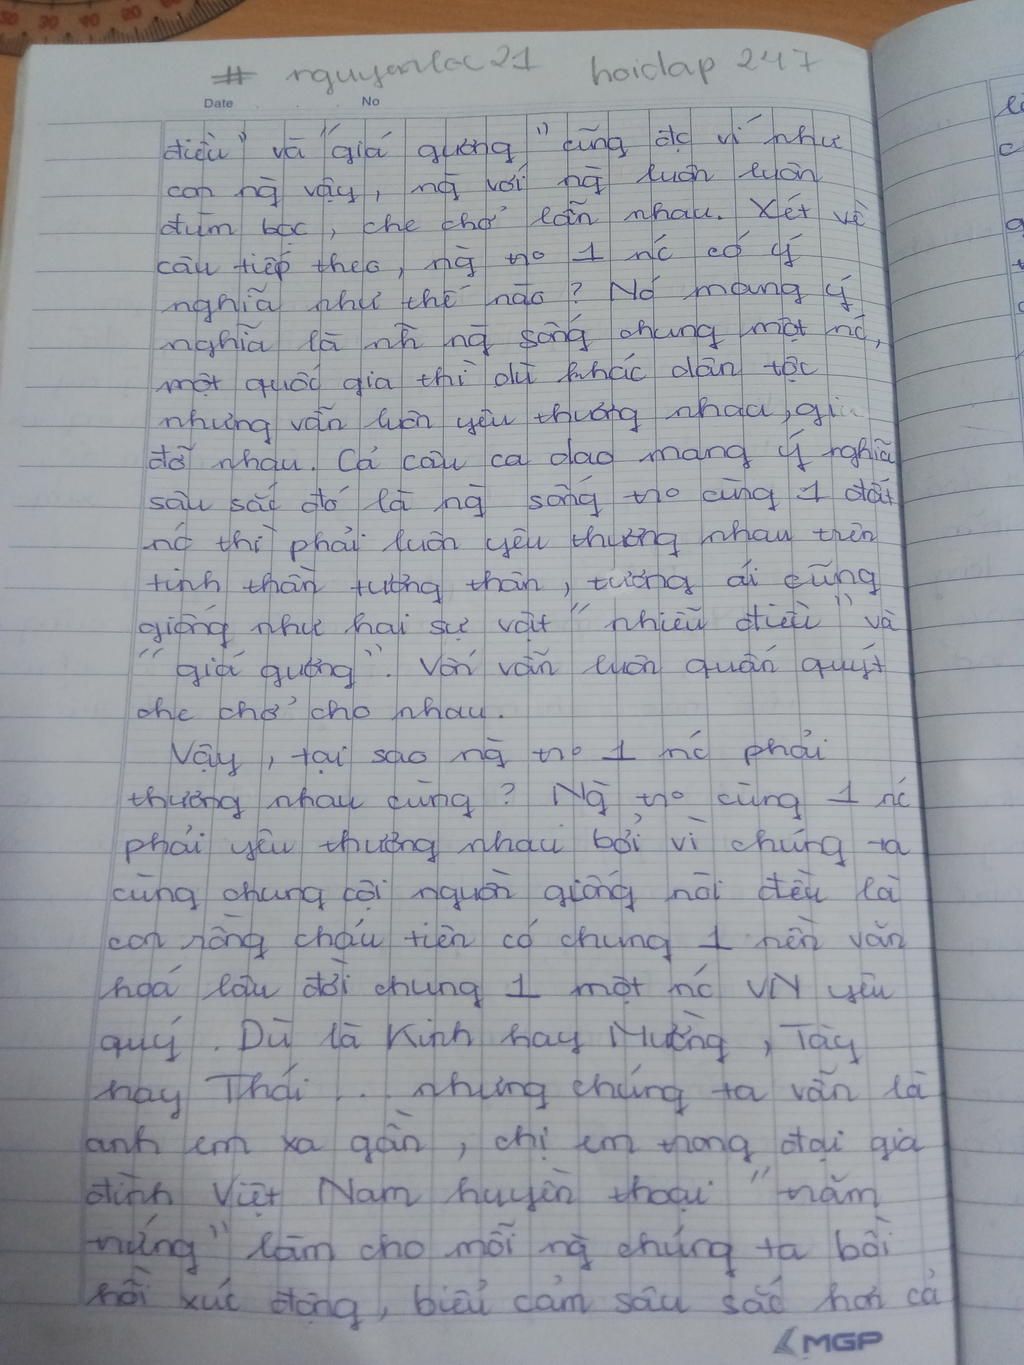 # nguyenloc21 hoidap 247
Date No
điều" và "giá gương" cũng đc ví như
con ng̀ vậy, ng̀ với ng̀ luôn luôn
đùm bọc, che chở lẫn nhau. Xét về
câu tiếp theo, ng̀ tro 1 nc có ý
nghĩa như thế nào? Nó mang ý
nghĩa là nh ng̀ sống chung một nc,
một quốc gia thì dù khác dân tộc
nhưng vẫn luôn yêu thương nhau, giú
đỡ nhau. Cả câu ca dao mang ý nghĩa
sâu sắc đó là ng̀ sống tro cùng 1 đất
nc thì phải luôn yêu thương nhau trên
tinh thần tương thân, tương ái cũng
giống như hai sự vật "nhiễu điều" và
"giá gương". Vốn vẫn luôn quấn quýt
che chở cho nhau.
Vậy, tại sao ng̀ tro 1 nc phải
thương nhau cùng? Ng̀ tro cùng 1 nc
phải yêu thương nhau bởi vì chúng ta
cùng chung cội nguồn giống nòi đều là
con rồng cháu tiên có chung 1 nền văn
hoá lâu đời chung 1 một nc VN yêu
quý. Dù là Kinh hay Mường, Tày
hay Thái... nhưng chúng ta vẫn là
anh em xa gần, chị em trong đại gia
đình Việt Nam huyền thoại "trăm
trứng" làm cho mỗi ng̀ chúng ta bồi
hồi xúc động, biểu cảm sâu sắc hơn cả
MGP